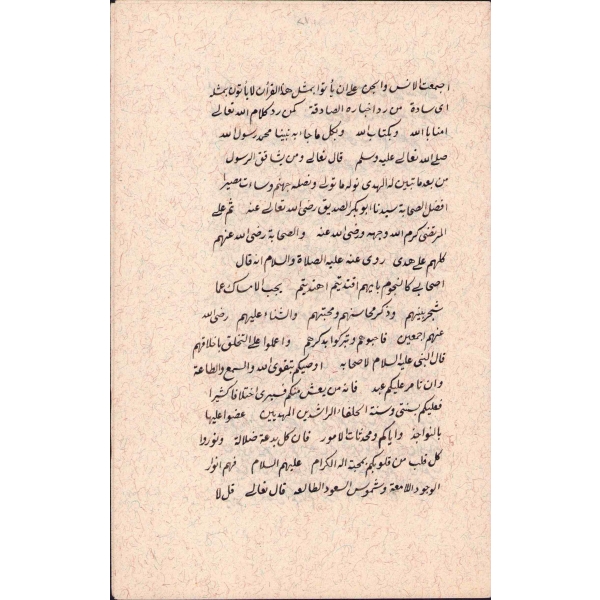 اجتمعت الانس والجن على ان يأتوا بمثل هذا القرآن لا يأتون بمثله
اى سادة من رد اخباره الصادقة كمن رد كلام الله تعالى
امنا بالله وبكتاب الله وبكل ما جاء به نبينا محمد رسول الله
صلى الله تعالى عليه وسلم قال تعالى ومن يشاقق الرسول
من بعد ما تبين له الهدى نوله ما تولى ونصله جهنم وساءت مصيرا
افضل الصحابة سيدنا ابو بكر الصديق رضى الله تعالى عنه ثم على
المرتضى كرم الله وجهه ورضى الله عنه والصحابة رضى الله عنهم
كلهم على هدى روى عنه عليه الصلاة والسلام انه قال
اصحابى كالنجوم بايهم اقتديتم اهتديتم يجب الامساك عما
شجر بينهم وذكر محاسنهم ومحبتهم والثناء عليهم رضى الله
عنهم اجمعين فاحبوهم وتبركوا بذكرهم واعملوا على التخلق باخلاقهم
قال النبى عليه السلام لاصحابه اوصيكم بتقوى الله والسمع والطاعة
وان تأمر عليكم عبد فانه من يعش منكم فسيرى اختلافا كثيرا
فعليكم بسنتى وسنة الخلفاء الراشدين المهديين عضوا عليها
بالنواجذ واياكم ومحدثات الامور فان كل بدعة ضلالة ونوروا
كل قلب من قلوبكم بمحبة اله الكرام عليهم السلام فهم انوار
الوجود اللامعة وشموس السعود الطالعه قال تعالى قل لا